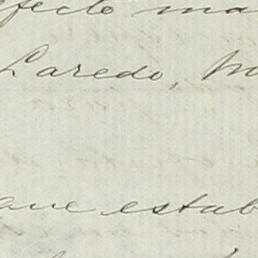 efecto ma
Laredo, M
que estab